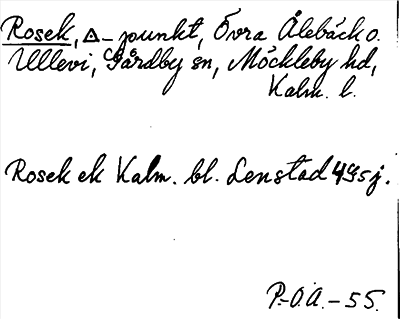 Rosek, △-punkt, Övra Ålebäck o.
Ullevi, Gårdby sn, Möckleby hd,
Kalm. l.
Rosek ek Kalm. bl. Lenstad 4g5j.
P.-O.A. - 55.